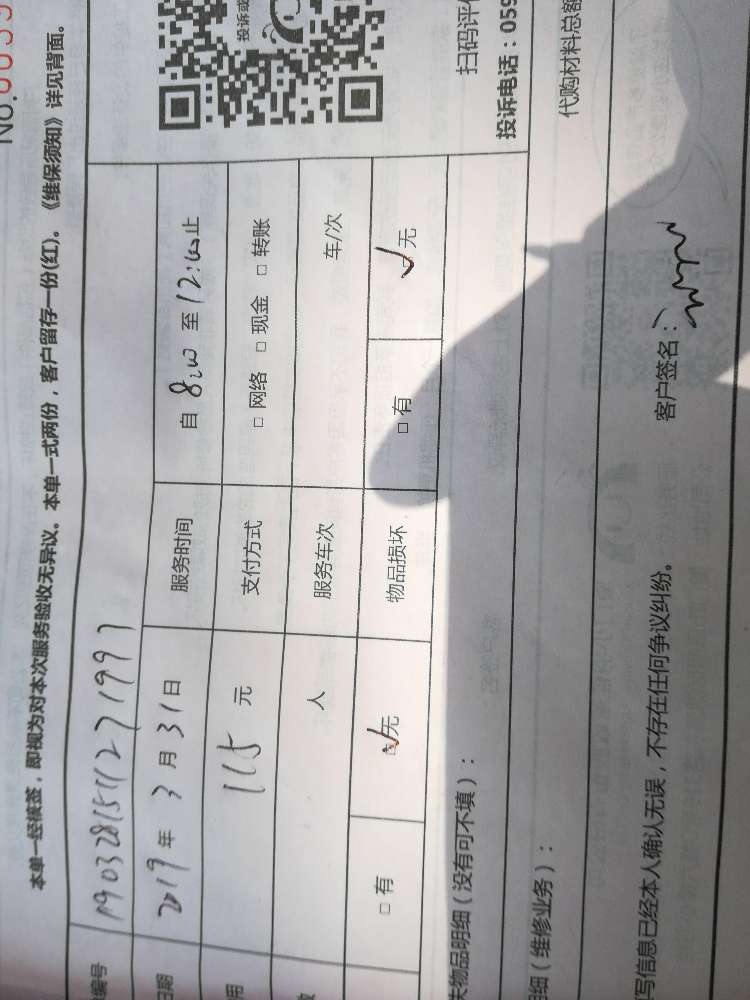 No.0039
本单一经核签，即视为对本次服务验收无异议。本单一式两份，客户留存一份(红)。《维保须知》详见背面。
编号 190328154127199
日期 2019 年 3 月 31 日 服务时间 自 8:00 至 12:00 止
用 115 元 支付方式 □ 网络 □ 现金 □ 转账
人 服务车次 车/次
□ 有 ☑ 无 物品损坏 □ 有 ☑ 无
投诉或
扫码评价
投诉电话：059
失物品明细（没有可不填）：
代购材料总额
明细（维修业务）：
写信息已经本人确认无误，不存在任何争议纠纷。 客户签名：